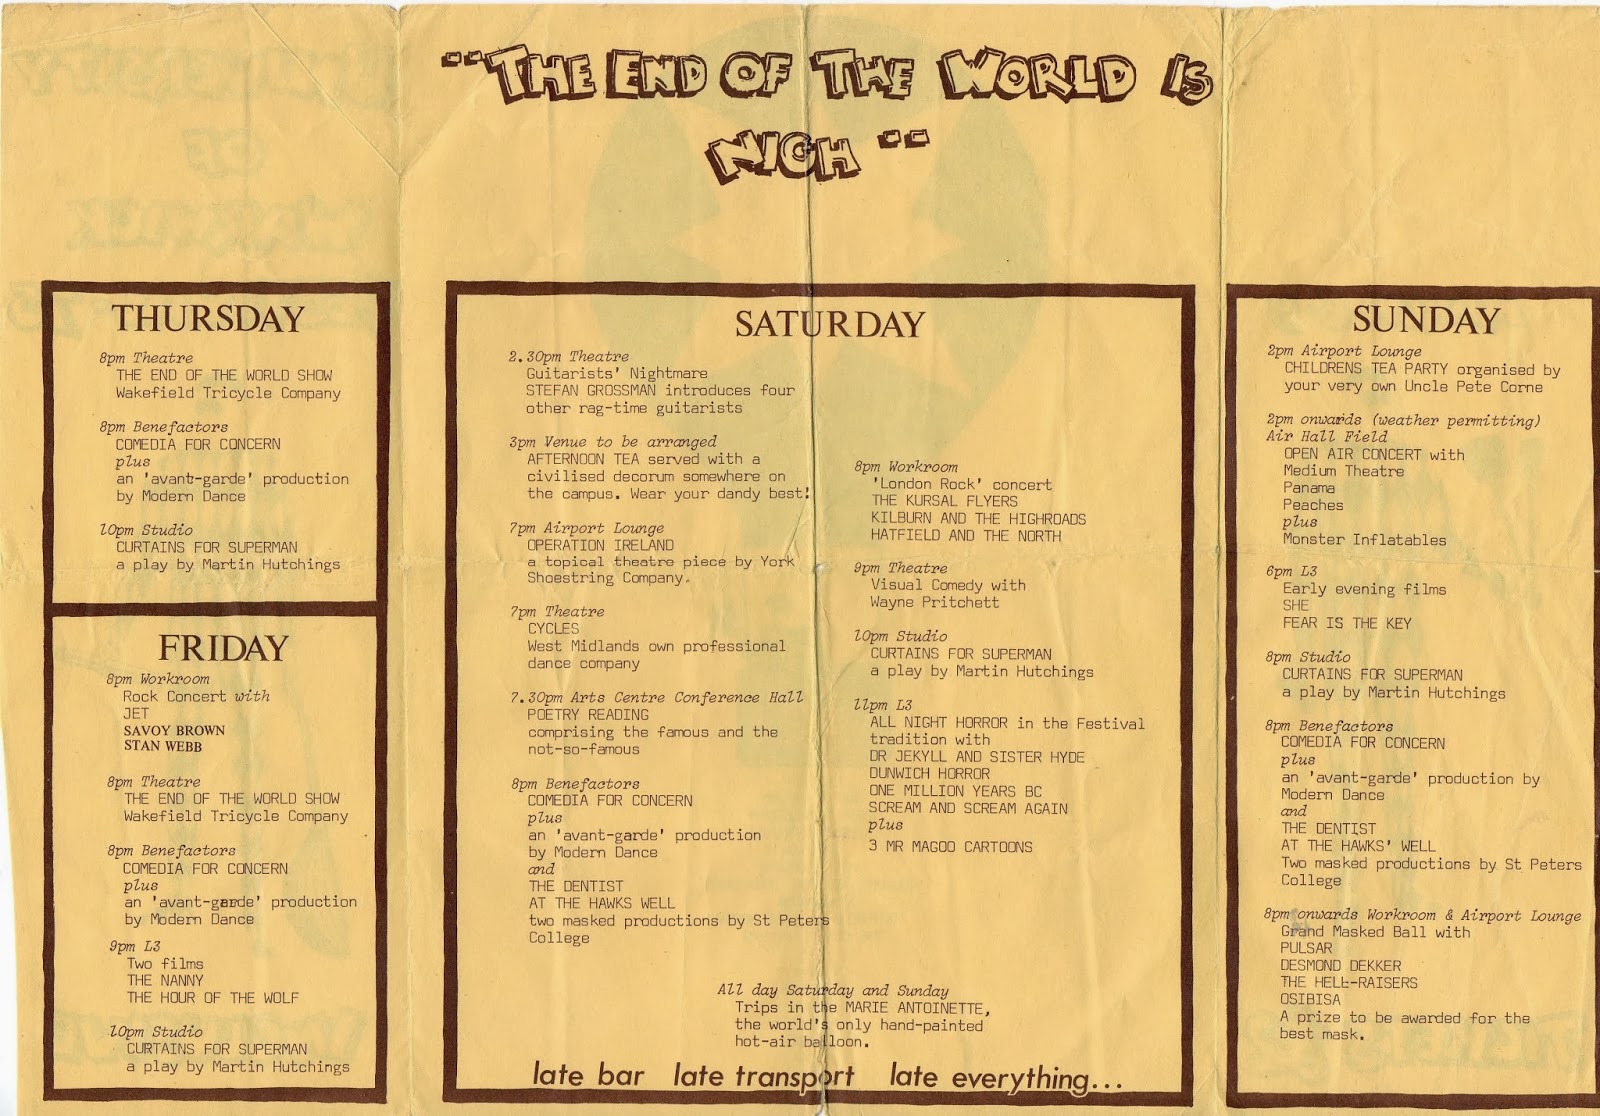 "THE END OF THE WORLD IS
NIGH "
THURSDAY
8pm Theatre
THE END OF THE WORLD SHOW
Wakefield Tricycle Company
8pm Benefactors
COMEDIA FOR CONCERN
plus
an 'avant-garde' production
by Modern Dance
10pm Studio
CURTAINS FOR SUPERMAN
a play by Martin Hutchings
FRIDAY
8pm Workroom
Rock Concert with
JET
SAVOY BROWN
STAN WEBB
8pm Theatre
THE END OF THE WORLD SHOW
Wakefield Tricycle Company
8pm Benefactors
COMEDIA FOR CONCERN
plus
an 'avant-garde' production
by Modern Dance
9pm L3
Two films
THE NANNY
THE HOUR OF THE WOLF
10pm Studio
CURTAINS FOR SUPERMAN
a play by Martin Hutchings
SATURDAY
2.30pm Theatre
Guitarists' Nightmare
STEFAN GROSSMAN introduces four
other rag-time guitarists
3pm Venue to be arranged
AFTERNOON TEA served with a
civilised decorum somewhere on
the campus. Wear your dandy best!
7pm Airport Lounge
OPERATION IRELAND
a topical theatre piece by York
Shoestring Company.
7pm Theatre
CYCLES
West Midlands own professional
dance company
7.30pm Arts Centre Conference Hall
POETRY READING
comprising the famous and the
not-so-famous
8pm Benefactors
COMEDIA FOR CONCERN
plus
an 'avant-garde' production
by Modern Dance
and
THE DENTIST
AT THE HAWKS WELL
two masked productions by St Peters
College
8pm Workroom
'London Rock' concert
THE KURSAL FLYERS
KILBURN AND THE HIGHROADS
HATFIELD AND THE NORTH
9pm Theatre
Visual Comedy with
Wayne Pritchett
10pm Studio
CURTAINS FOR SUPERMAN
a play by Martin Hutchings
11pm L3
ALL NIGHT HORROR in the Festival
tradition with
DR JEKYLL AND SISTER HYDE
DUNWICH HORROR
ONE MILLION YEARS BC
SCREAM AND SCREAM AGAIN
plus
3 MR MAGOO CARTOONS
All day Saturday and Sunday
Trips in the MARIE ANTOINETTE,
the world's only hand-painted
hot-air balloon.
late bar late transport late everything...
SUNDAY
2pm Airport Lounge
CHILDRENS TEA PARTY organised by
your very own Uncle Pete Corne
2pm onwards (weather permitting)
Air Hall Field
OPEN AIR CONCERT with
Medium Theatre
Panama
Peaches
plus
Monster Inflatables
6pm L3
Early evening films
SHE
FEAR IS THE KEY
8pm Studio
CURTAINS FOR SUPERMAN
a play by Martin Hutchings
8pm Benefactors
COMEDIA FOR CONCERN
plus
an 'avant-garde' production by
Modern Dance
and
THE DENTIST
AT THE HAWKS' WELL
Two masked productions by St Peters
College
8pm onwards Workroom & Airport Lounge
Grand Masked Ball with
PULSAR
DESMOND DEKKER
THE HELL-RAISERS
OSIBISA
A prize to be awarded for the
best mask.